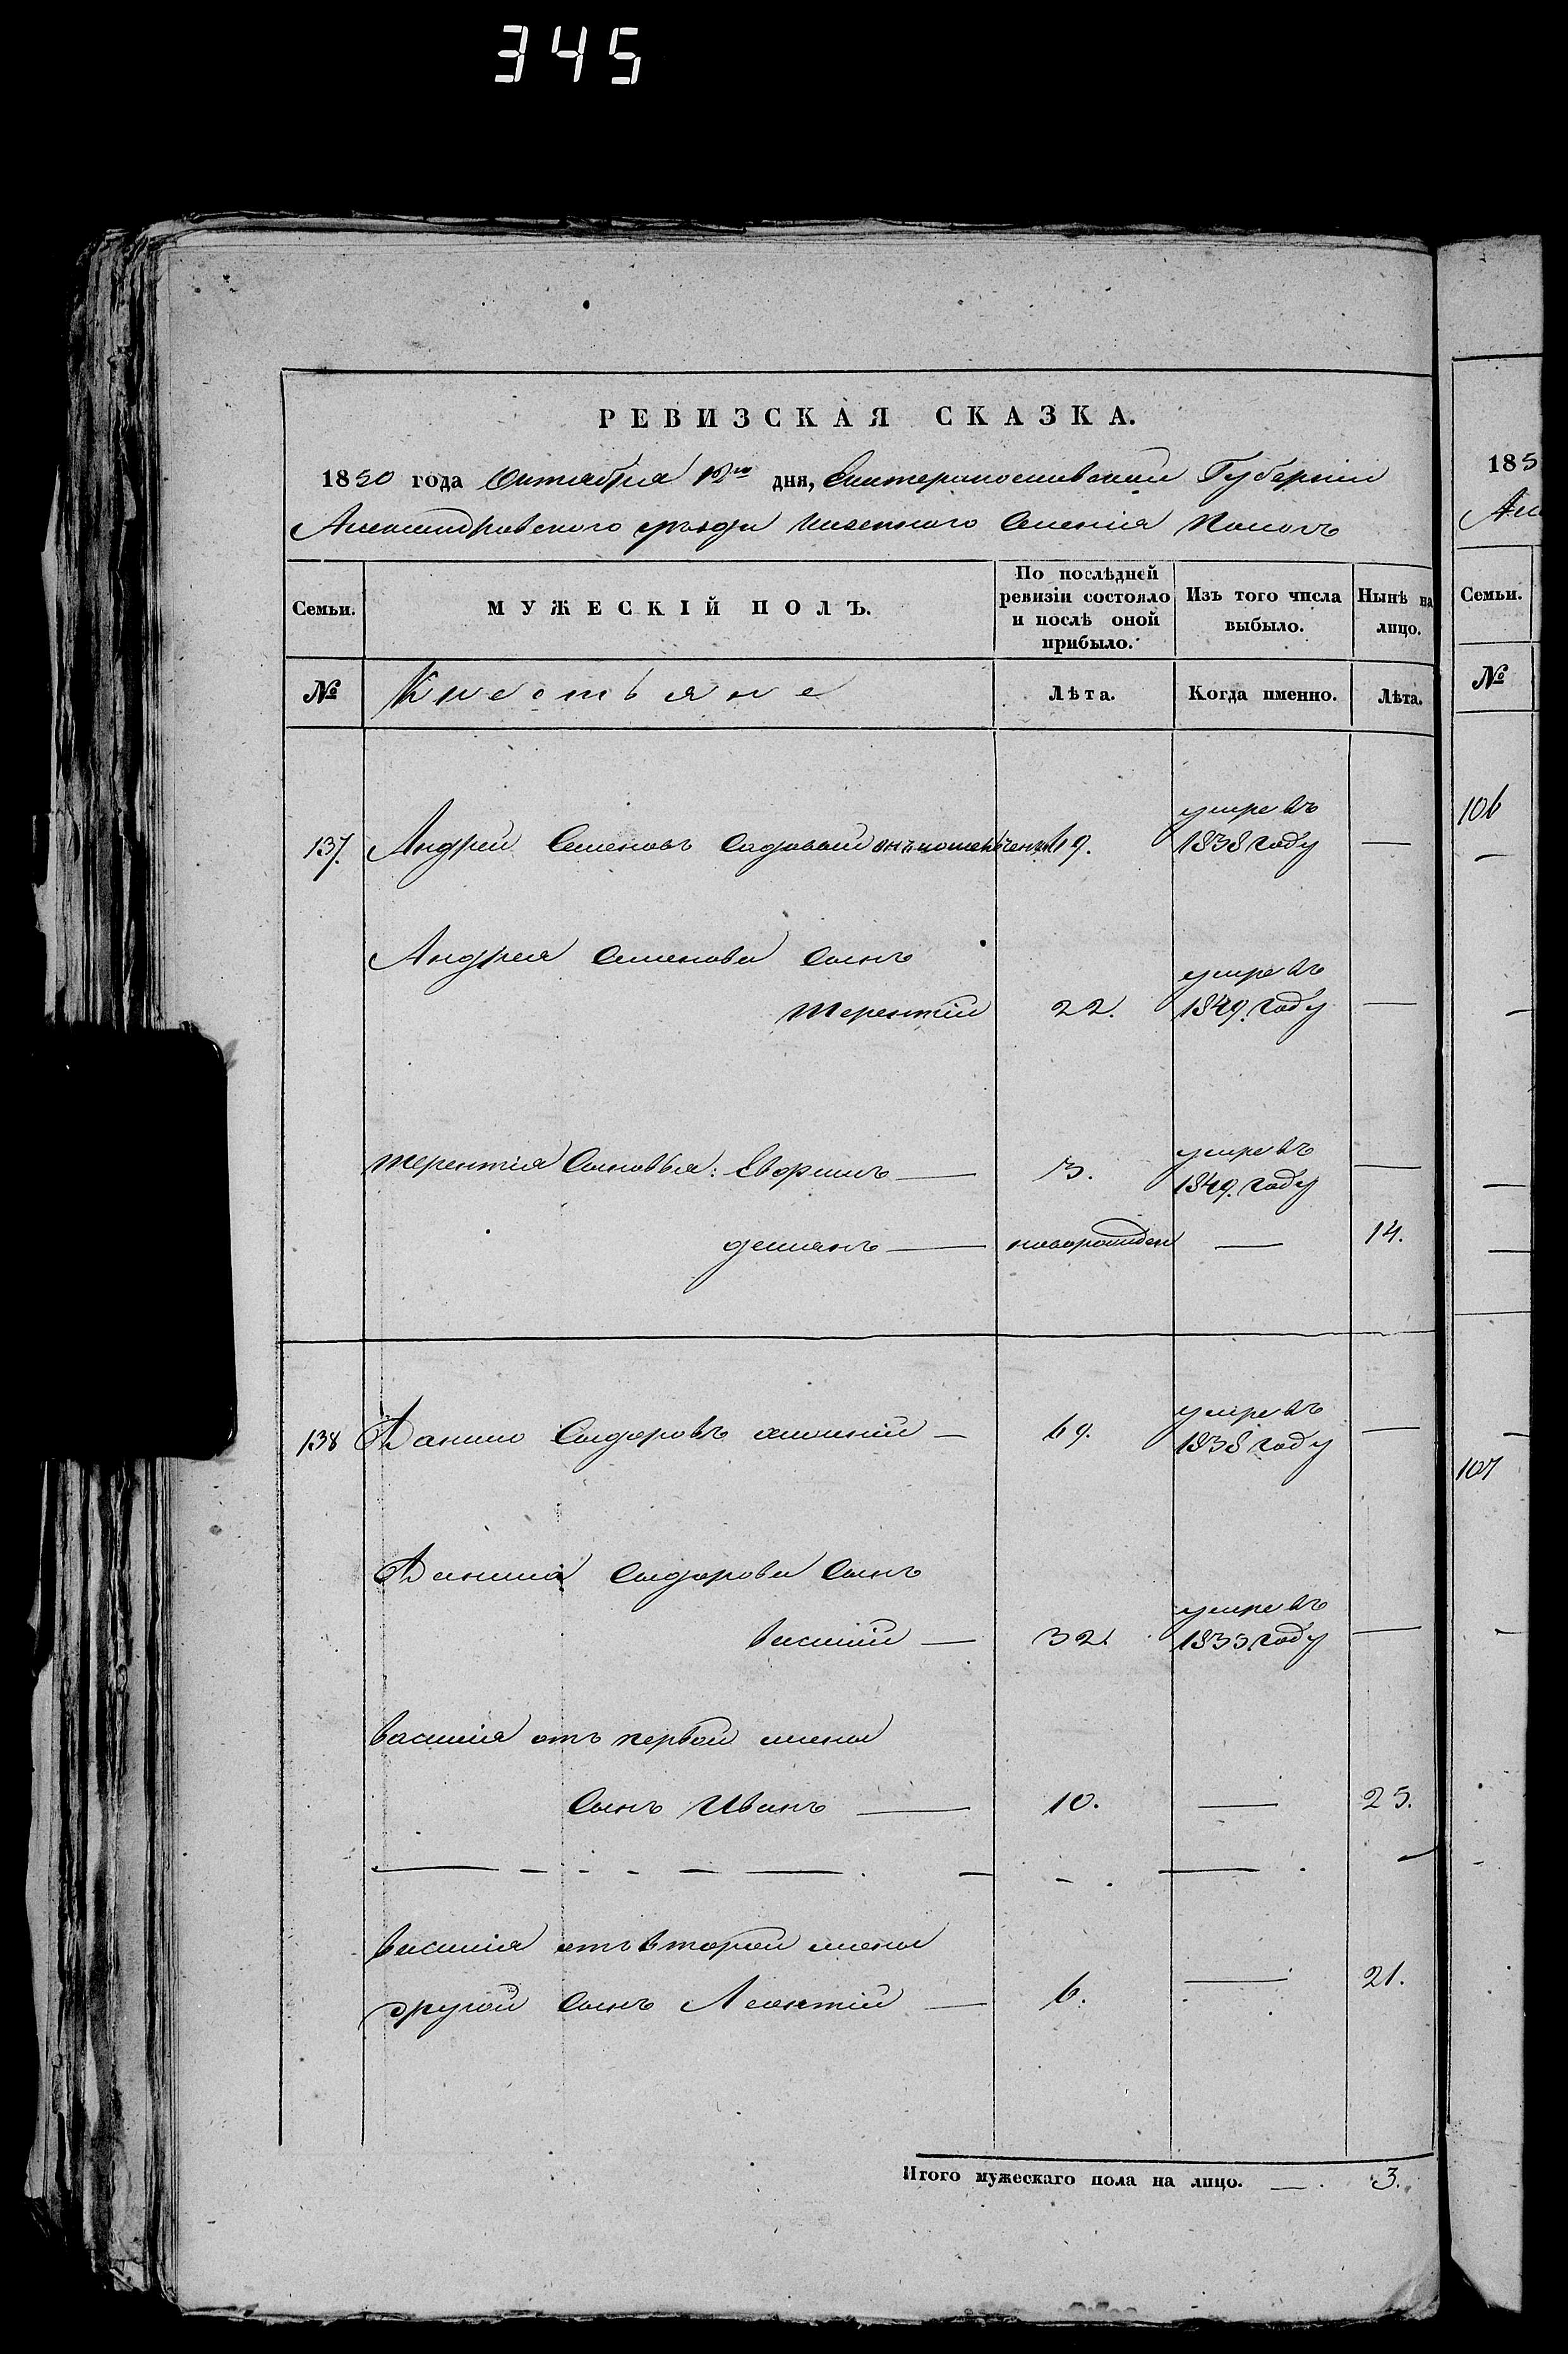 345
РЕВИЗСКАЯ СКАЗКА.
1850 года Октября 12го дня, Екатеринославской Губернии
Александровского уезда казенного Селенія Пологъ
Семьи.
МУЖЕСКІЙ ПОЛЪ.
По послѣдней ревизіи состояло и послѣ оной прибыло.
Изъ того числа выбыло.
Нынѣ на лицо.
№
Крестьяне
Лѣта.
Когда именно.
Лѣта.
137. Андрей Семеновъ Садовой 69. умре въ 1838 году —
Андрея Семенова Сынъ
Терентій 22. умре въ 1849. году —
Терентія Сыновья: Евфимъ — 3. умре въ 1849. году —
демянъ — новорожден — 14.
138 Данило Сидоровъ — 69. умре въ 1838 году —
Данила Сидорова Сынъ
Василій — 32. умре въ 1835 году —
Василія отъ первой жены
Сынъ Иванъ — 10. — 25.
Василія отъ второй жены
другой Сынъ Леонтій — 6. — 21.
Итого мужескаго пола на лицо. — 3.
185
Але
Семьи.
№
106
107